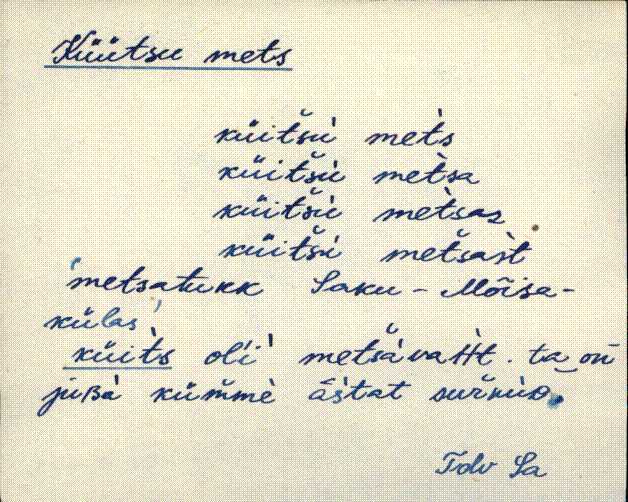 Küütsu mets
küitšù mets̀
küitšù mets̀a
küitšù mets̀as
küitšù metšast
'metsatukk Saku-Mõisa-
külas'
küits̀ oĺi metšavaHt. ta on
juʙa kümme āstat surnuᴅ.
Tdv Sa